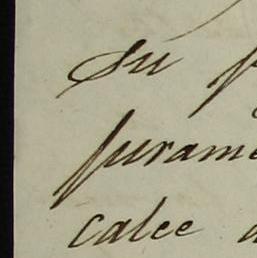 Su f
jurame
calce a